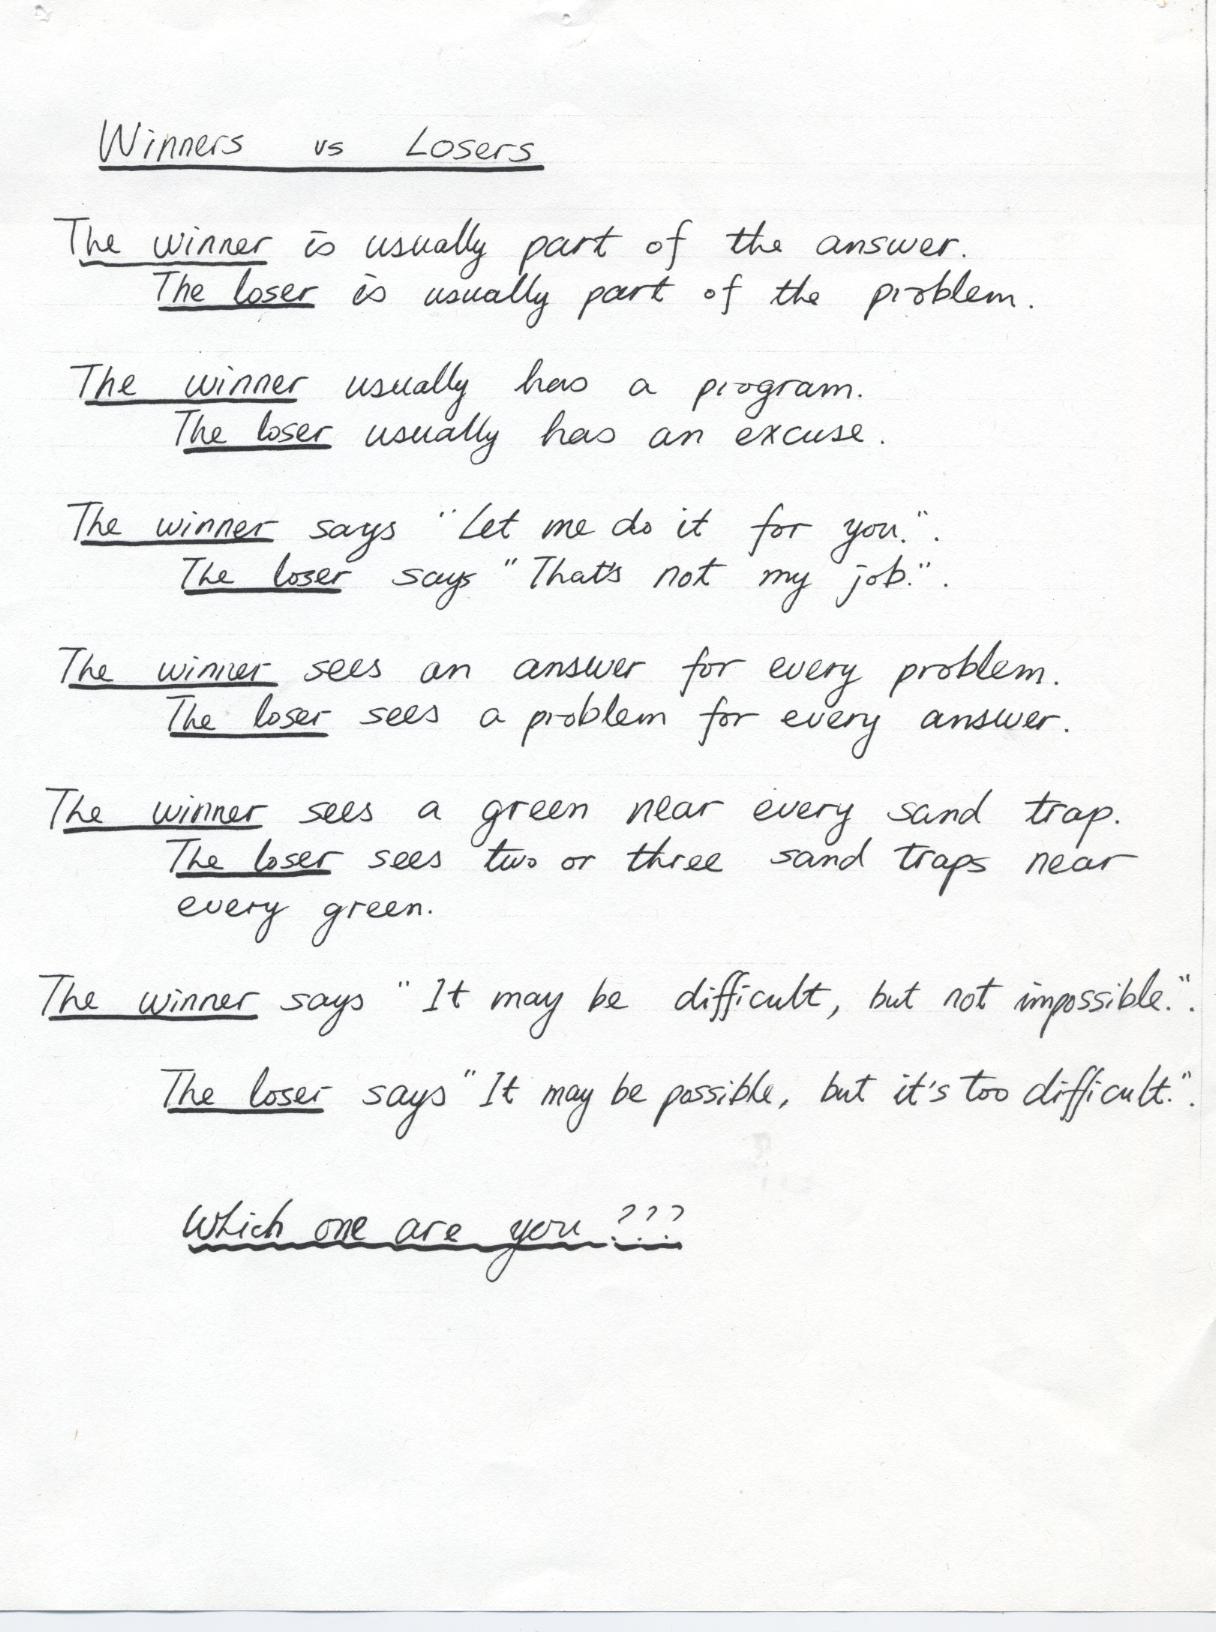 Winners vs Losers
The winner is usually part of the answer.
The loser is usually part of the problem.
The winner usually has a program.
The loser usually has an excuse.
The winner says "Let me do it for you.".
The loser says "That's not my job.".
The winner sees an answer for every problem.
The loser sees a problem for every answer.
The winner sees a green near every sand trap.
The loser sees two or three sand traps near
every green.
The winner says "It may be difficult, but not impossible.".
The loser says "It may be possible, but it's too difficult.".
Which one are you???